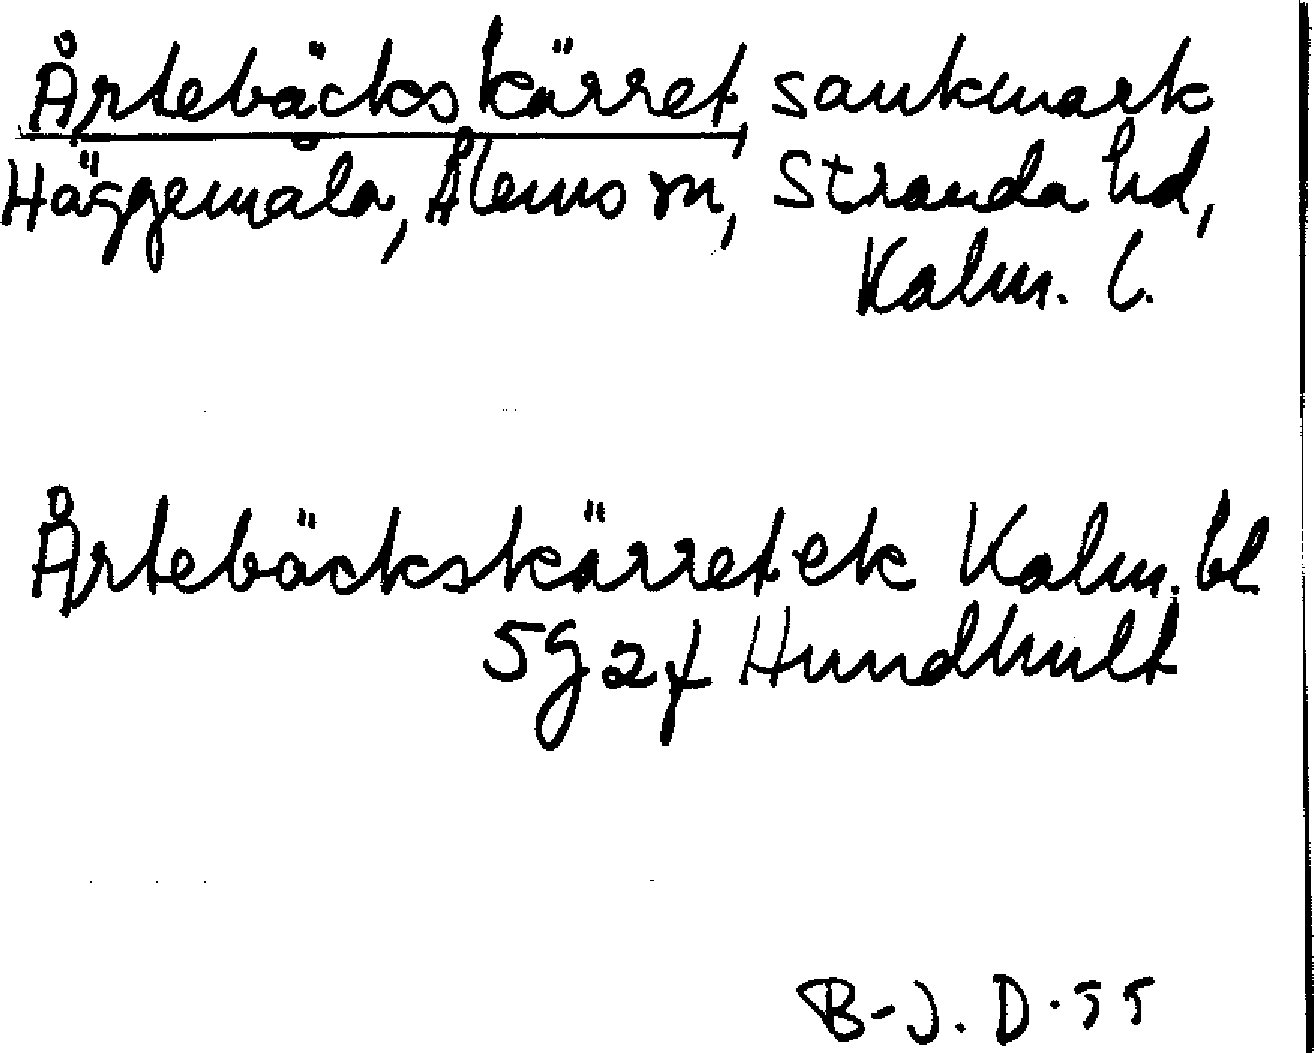 Årtebäckskärret, sankmark
Häggemåla, Ålems sn, Stranda hd,
Kalm. l.
Årtebäckskärret ek Kalm. bl
5g2f Hundhult
B-J. D. 55